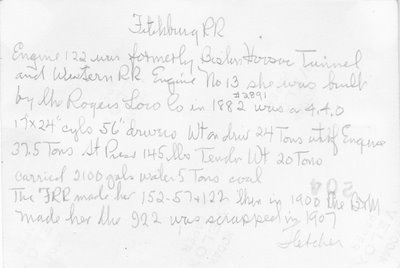 Fitchburg RR
Engine 122 was formerly Boston Hoosac Tunnel
and Western RR Engine No 13 she was built
#2891
by the Rogers Loco Co in 1882 was a 4.4.0
17x24" cyls 56" drivers Wt on driv 24 Tons wt of Engine
37.5 Tons St Press 145 lbs Tender Wt 20 Tons
carried 2100 gals water 5 Tons coal
The FRR made her 152-57+122 then in 1900 the B&M
made her the 922 was scrapped in 1907
Fletcher